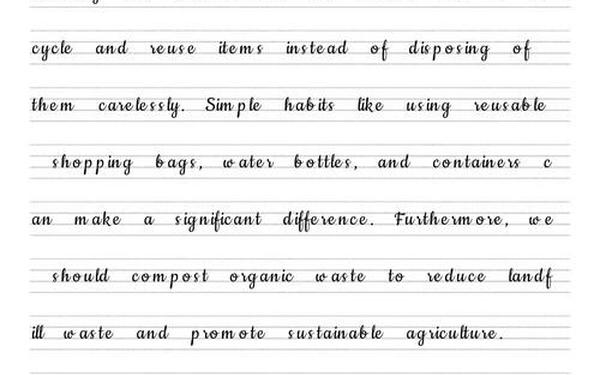 cycle and reuse items instead of disposing of
them carelessly. Simple habits like using reusable
shopping bags, water bottles, and containers c
an make a significant difference. Furthermore, we
should compost organic waste to reduce landf
ill waste and promote sustainable agriculture.